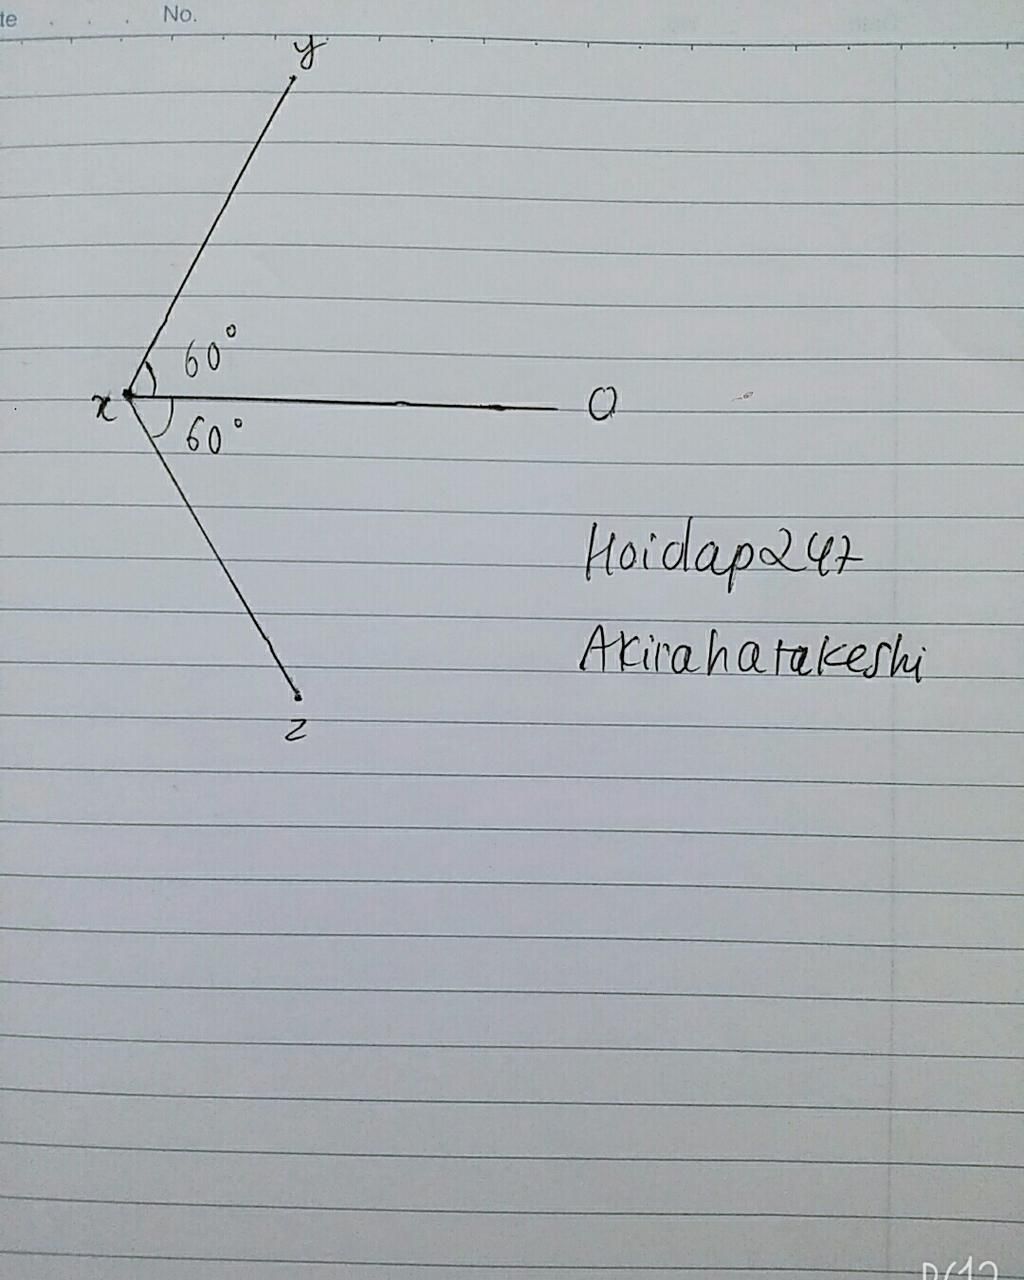 te . . . No.
y
60°
x O
60°
Hoidap247
Akirahatakeshi
z